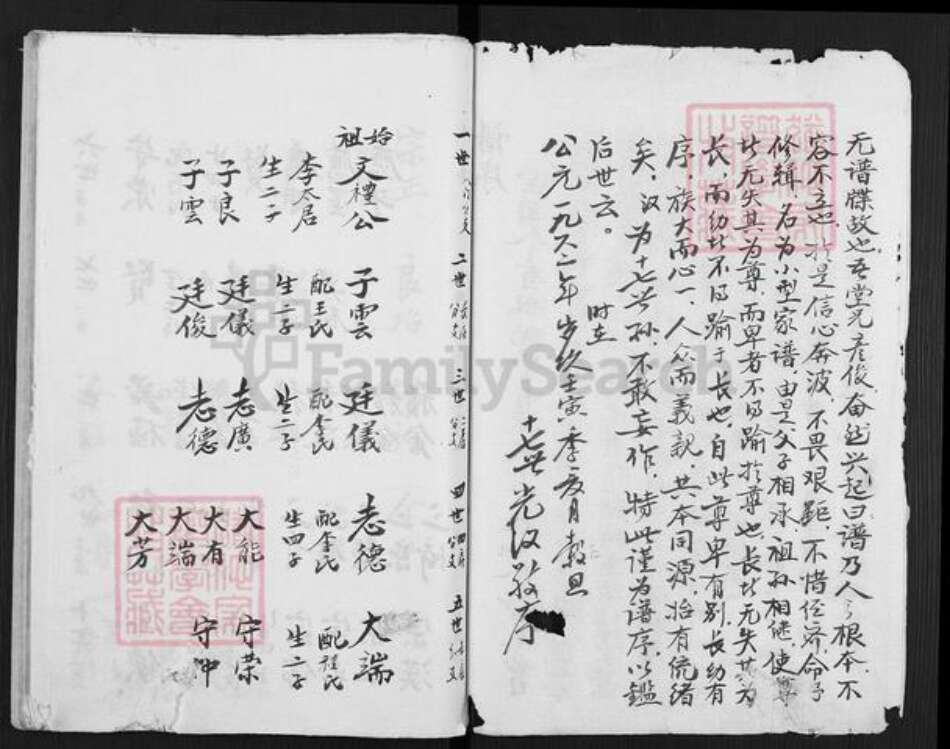 无谱牒故也吾堂兄彦俊奋然兴起曰谱乃人之根本.不
容不立也于是信心奔波.不畏艰鉅.不惜经济.命予
修辑.名为小型家谱.由是父子相承.祖孙相继.使尊
者无失其为尊.而卑者不得踰于尊也.长者无失其为
长.而幼者不得踰于长也.自此尊卑有别.长幼有
序.族大而心一.人众而義親.共本同源.始有统绪
矣.汉为十七世孙.不敢妄作.特此谨为谱序.以鑑
后世云。 时在
公元一九六二年岁次壬寅季夏月穀旦
十七世光汉敬序
一世 二世 三世 四世 五世
始祖 文禮公 子雲 廷儀 志德 大端
李太君 配王氏 配李氏 配李氏 配程氏
生二子 生二子 生二子 生四子 生二子
子良 廷儀 志廣 大能 守荣
子雲 廷俊 志德 大有 守仲
大端
大芳
FamilySearch